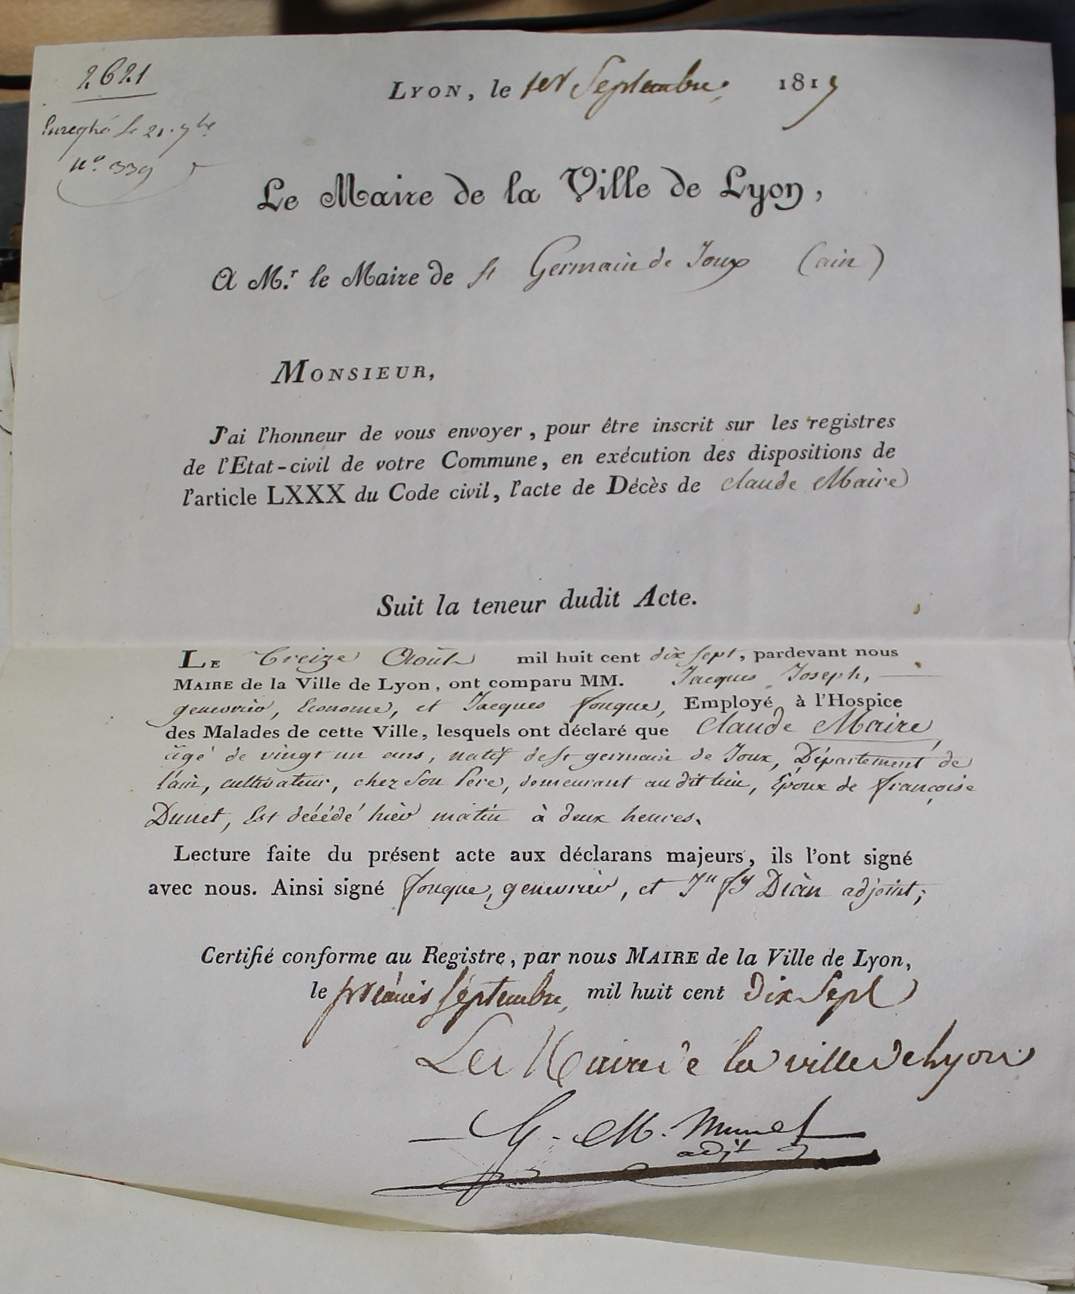 2621
Enregtré le 21. 7bre
N.o 339
LYON, le 1er Septembre 1817
Le Maire de la Ville de Lyon,
A M.r le Maire de St Germain de Joux (ain)
MONSIEUR,
J'ai l'honneur de vous envoyer, pour être inscrit sur les registres
de l'Etat-civil de votre Commune, en exécution des dispositions de
l'article LXXX du Code civil, l'acte de Décès de Claude Maire
Suit la teneur dudit Acte.
LE Treize Août mil huit cent dix sept, pardevant nous
MAIRE de la Ville de Lyon, ont comparu MM. Jacques Joseph,
genevrier, Econome, et Jacques fouque, Employé à l'Hospice
des Malades de cette Ville, lesquels ont déclaré que Claude Maire,
âgé de vingt un ans, natif de St germain de Joux, Département de
l'ain, cultivateur, chez son Père, demeurant au dit lieu, Epoux de françoise
Dunet, Est décédé hier matin à deux heures.
Lecture faite du présent acte aux déclarans majeurs, ils l'ont signé
avec nous. Ainsi signé fouque, genevrier, et Dian adjoint;
Certifié conforme au Registre, par nous MAIRE de la Ville de Lyon,
le premier septembre, mil huit cent Dix Sept
Le Maire de la ville de Lyon
M. adjt